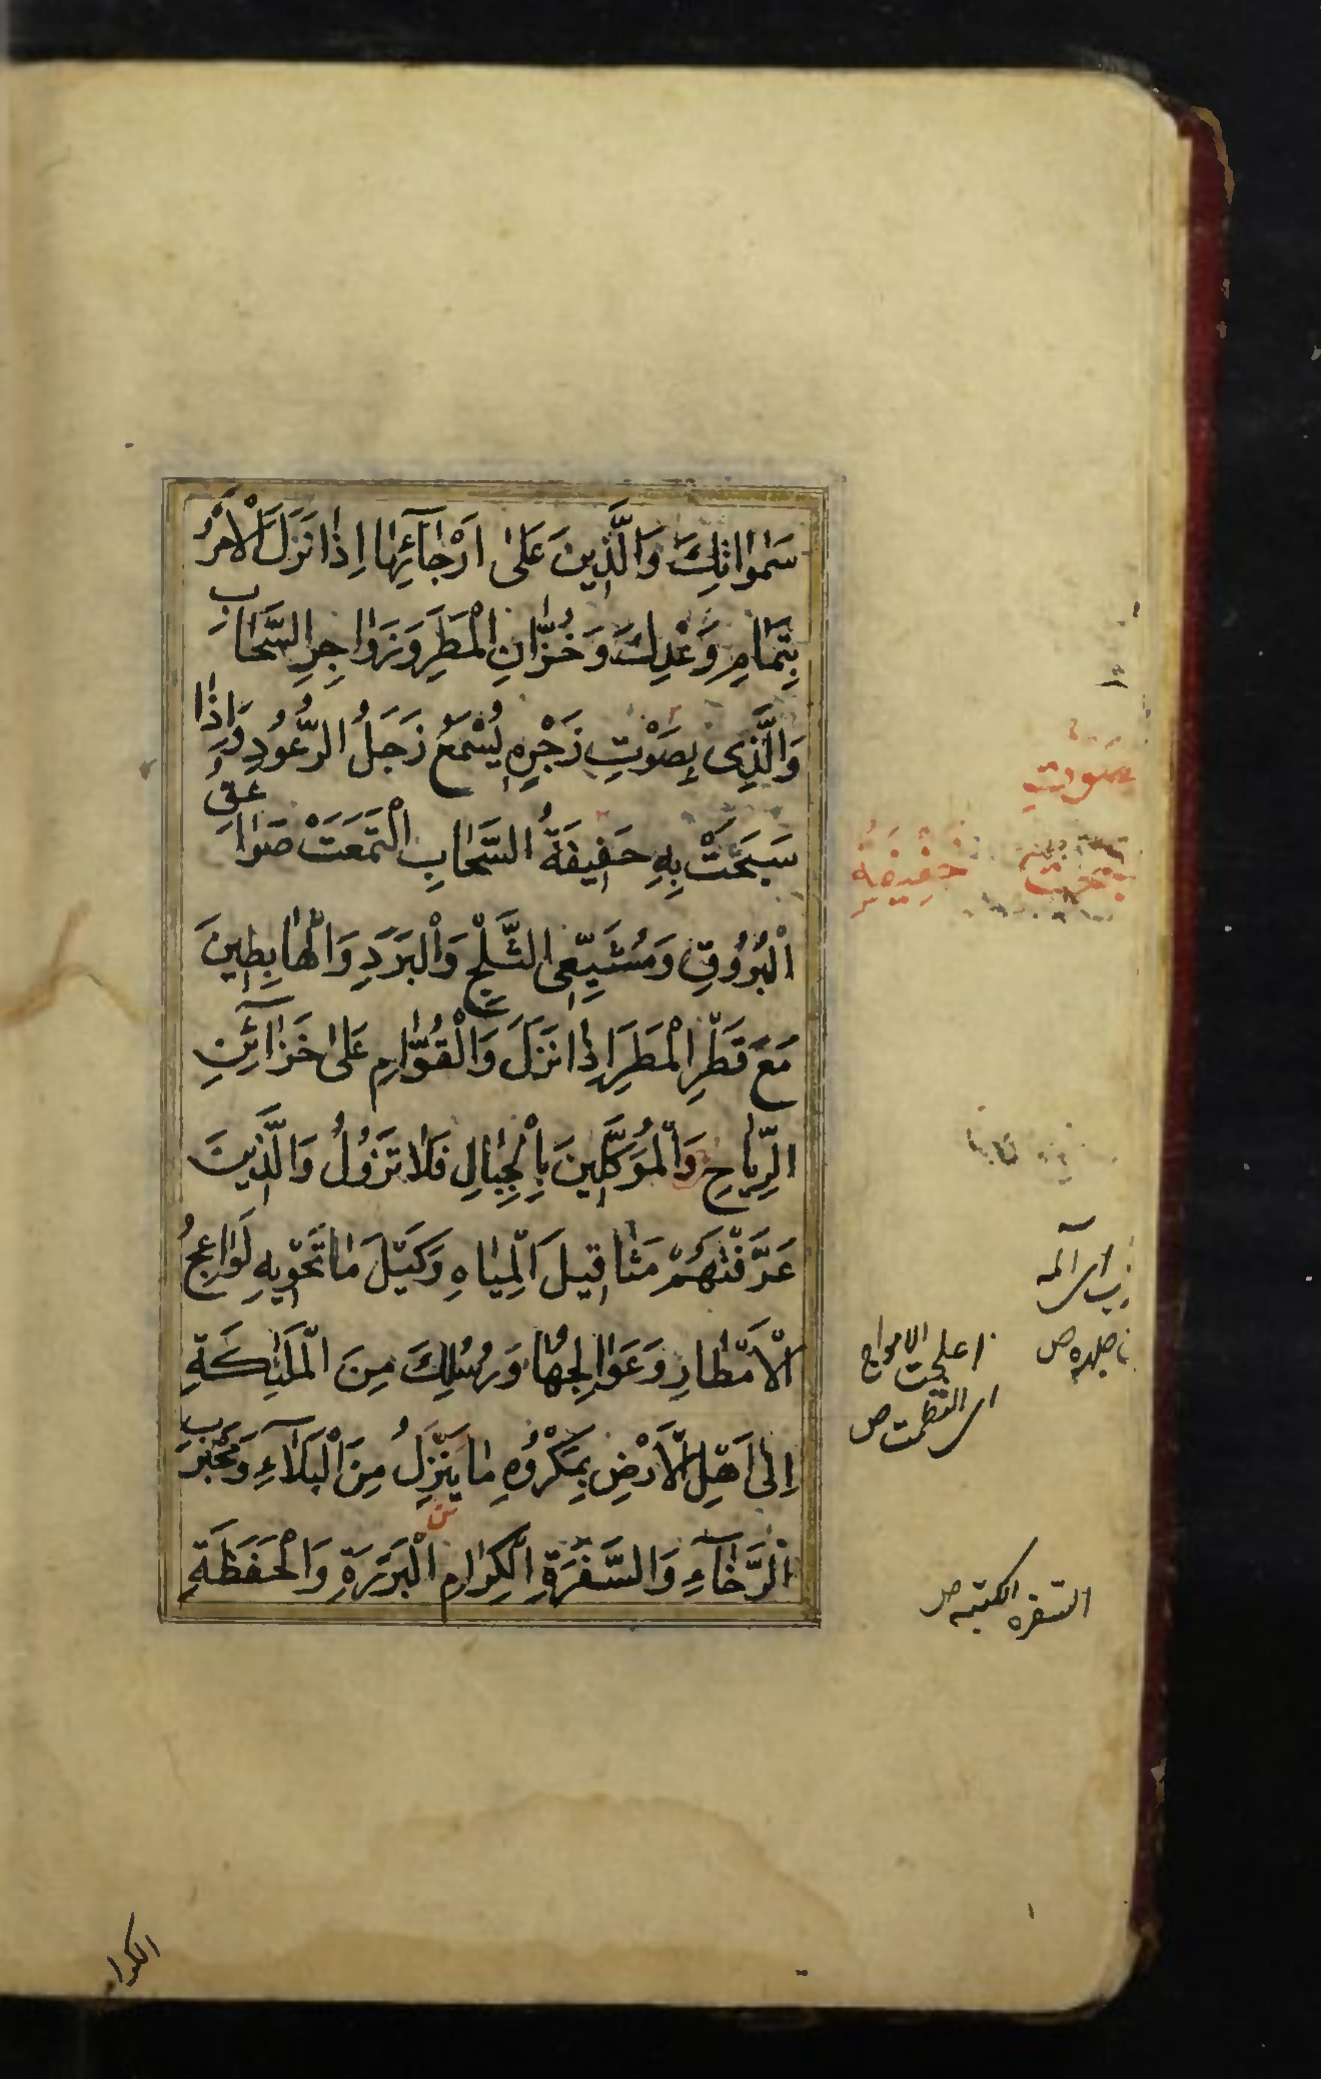 سَمٰوَاتِكَ وَالَّذِينَ عَلىٰ اَرْجٰآئِهٰا اِذٰا نَزَلَ الْاَمْرُ
بِتَمٰامِ وَعْدِكَ وَخُزّٰانِ الْمَطَرِ وَزَوٰاجِرِ السَّحٰابِ
وَالَّذِى بِصَوْتِ زَجْرِهِ يُسْمَعُ زَجَلُ الرُّعُودِ وَاِذٰا
سَبَحَتْ بِهِ حَفِيفَةُ السَّحٰابِ الْتَمَعَتْ صَوٰاعِقُ
الْبُرُوقِ وَمُشَيِّعِى الثَّلْجِ وَالْبَرَدِ وَالْهٰابِطِينَ
مَعَ قَطْرِ الْمَطَرِ اِذٰا نَزَلَ وَالْقُوّٰامِ عَلىٰ خَزٰآئِنِ
الرِّيٰاحِ وَالْمُوَكَّلِينَ بِالْجِبٰالِ فَلٰا تَزُولُ وَالَّذِينَ
عَرَّفْتَهُمْ مَثٰاقِيلَ الْمِيٰاهِ وَكَيْلَ مٰا تَحْوِيهِ لَوٰاعِجُ
الْاَمْطٰارِ وَعَوٰالِجُهٰا وَرُسُلِكَ مِنَ الْمَلٰئِكَةِ
اِلىٰ اَهْلِ الْاَرْضِ بِمَكْرُوهِ مٰا يَنْزِلُ مِنَ الْبَلٰآءِ وَمَحْبُوبِ
الرَّخٰآءِ وَالسَّفَرَةِ الْكِرٰامِ الْبَرَرَةِ وَالْحَفَظَةِ
صوت
خفيفة
اعلجت الامواج
اى التطمت ص
السفره الكتبه ص